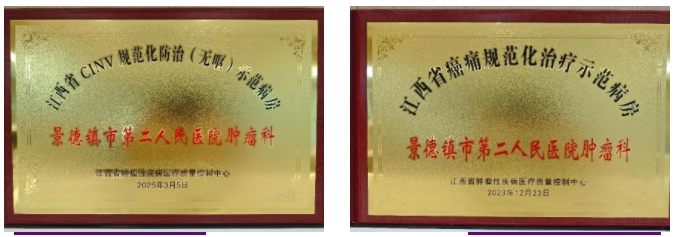 江西省CINV规范化防治（无呕）示范病房
景德镇市第二人民医院肿瘤科
江西省肿瘤性疾病医疗质量控制中心
2025年3月5日
江西省癌痛规范化治疗示范病房
景德镇市第二人民医院肿瘤科
江西省肿瘤性疾病医疗质量控制中心
2023年12月23日